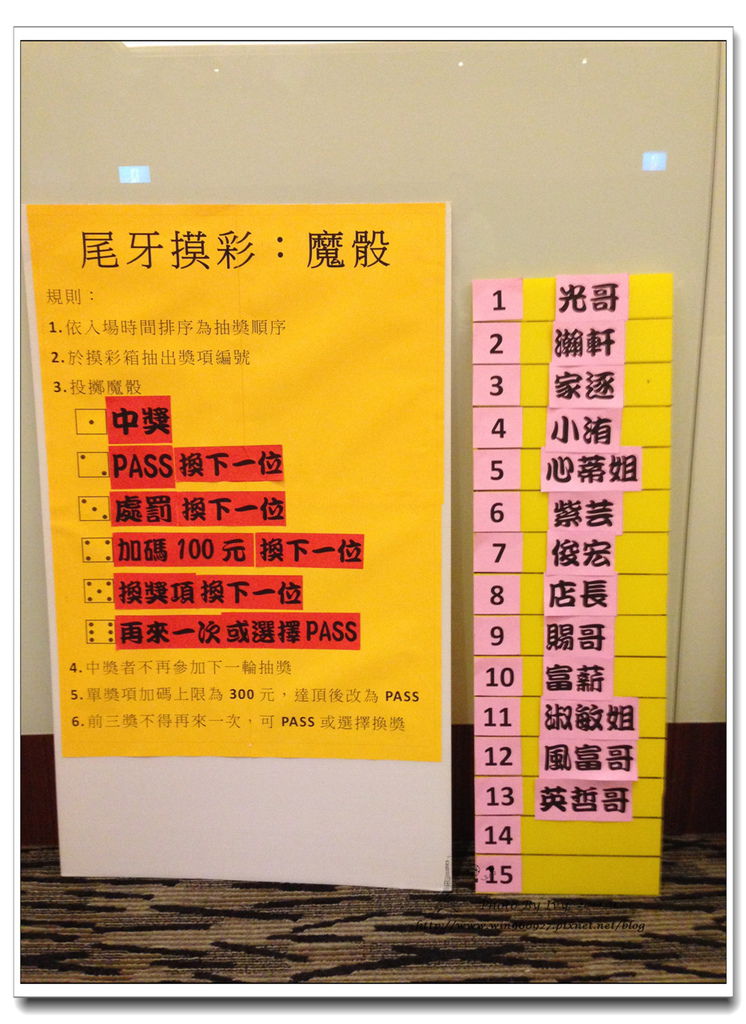 尾牙摸彩：魔骰
規則：
1.依入場時間排序為抽獎順序
2.於摸彩箱抽出獎項編號
3.投擲魔骰
中獎
PASS 換下一位
處罰 換下一位
加碼 100 元 換下一位
換獎項 換下一位
再來一次 或選擇 PASS
4.中獎者不再參加下一輪抽獎
5.單獎項加碼上限為 300 元，達頂後改為 PASS
6.前三獎不得再來一次，可 PASS 或選擇換獎
1 光哥
2 瀚軒
3 家逐
4 小洧
5 心蒂姐
6 紫芸
7 俊宏
8 店長
9 賜哥
10 富薪
11 淑敏姐
12 風富哥
13 英哲哥
14
15
Photo By Ivy
http://www.win900927.pixnet.net/blog